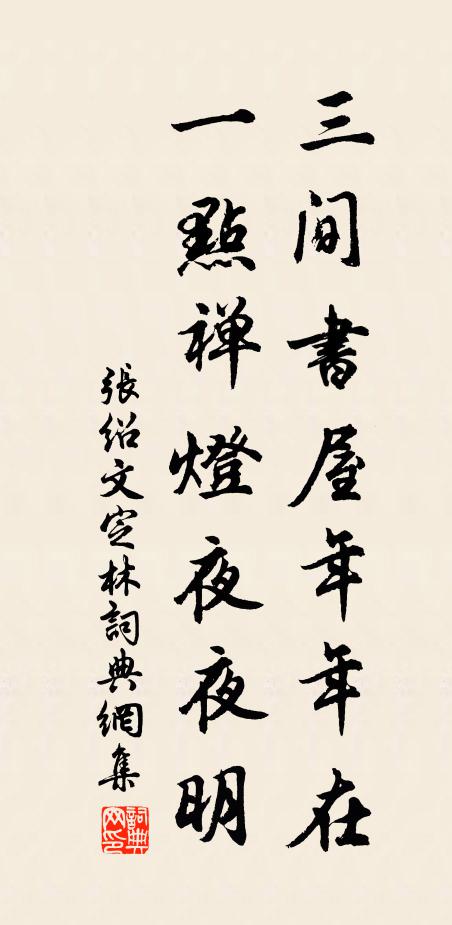 三间書屋年年在
一點禅燈夜夜明
張绍文定林詞典網集
詞典網印